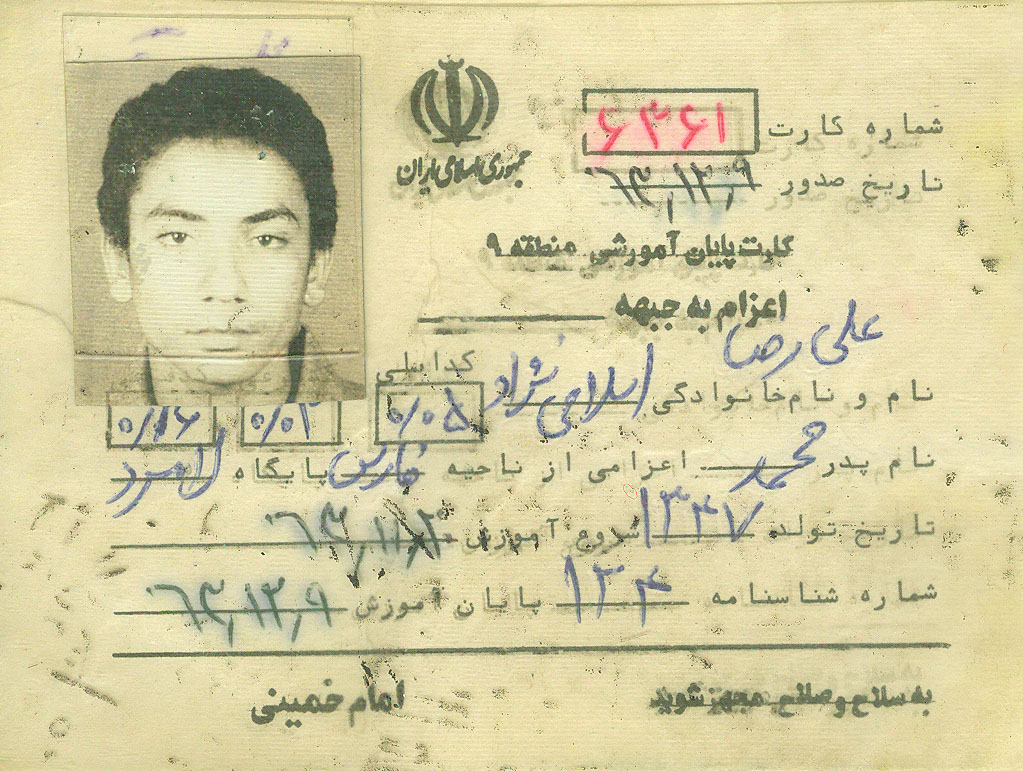 جمهوری اسلامی ایران
شماره کارت ۶۳۶۱
تاریخ صدور ۶۳,۱۲,۹
کارت پایان آموزشی منطقه ۹
اعزام به جبهه
نام و نام خانوادگی علی رضا اسلامی نژاد
کد اسلی ۰/۰۵ ۰/۰۲ ۰/۱۶
نام پدر محمد اعزامی از ناحیه فارس پایگاه لامرد
تاریخ تولد ۱۳۴۷ شروع آموزش
شماره شناسنامه ۱۲۴ پایان آموزش ۶۳,۱۲,۹
به سلاح و صلاح مجهز شوید امام خمینی